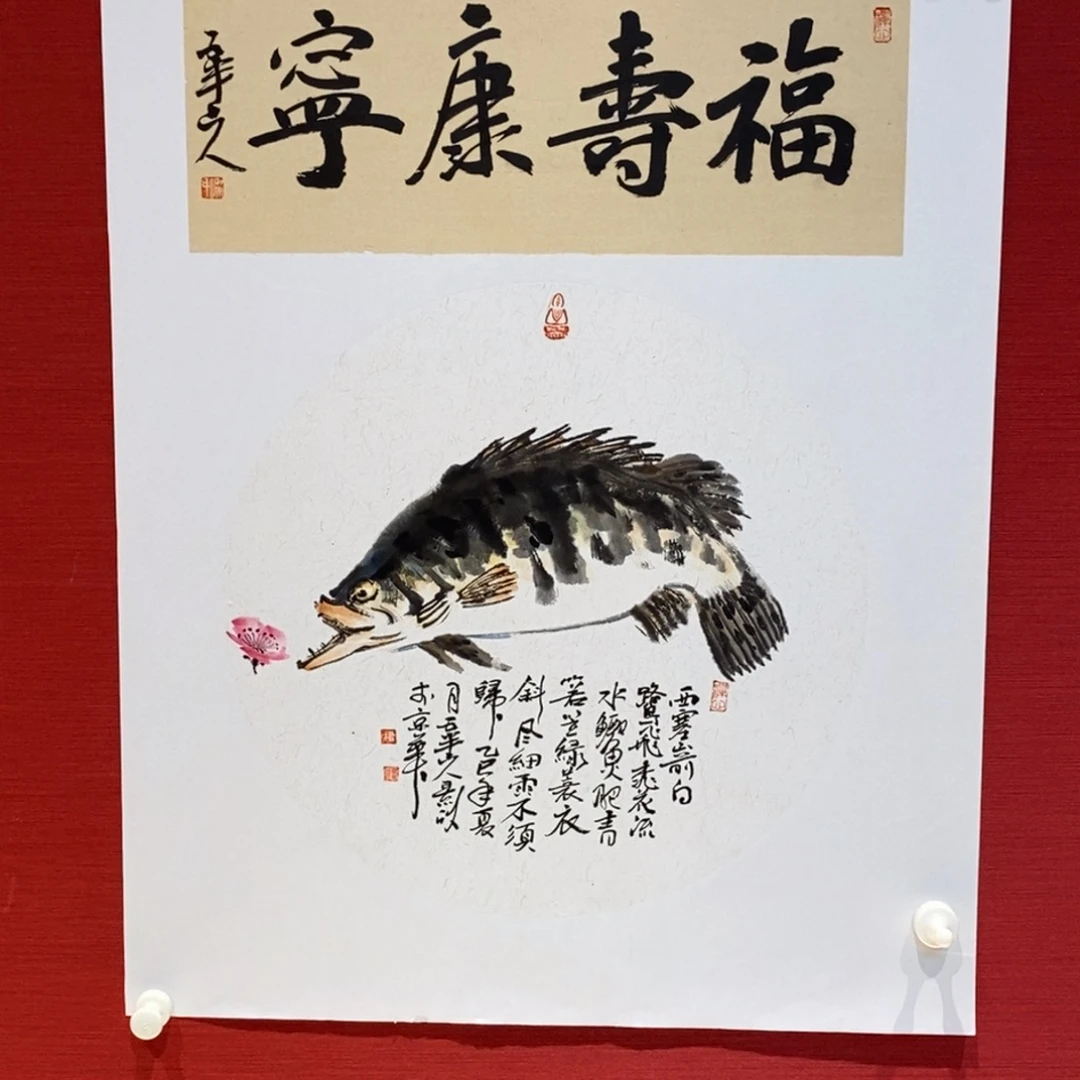 福壽康寧
山人
西塞山前白
鷺飛桃花流
水鱖魚肥青
箬笠綠蓑衣
斜风細雨不須
歸乙巳年夏
月山人
於京華